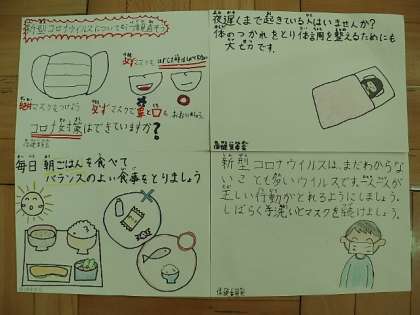 新型コロナウイルスについてもう一度見直そう
マスクをつけよう
マスクで鼻と口を
コロナ対策はできていますか？
夜遅くまで起きている人はいませんか？
体のつかれをとり体調を整えるためにも
大切です。
保健委員会
毎日 朝ごはんを食べて、
バランスのよい食事をとりましょう
新型コロナウイルスは、まだわからな
いことも多いウイルスです。一人一人が
正しい行動がとれるようにしましょう。
しばらく手洗いとマスクを続けましょう。
保健委員会